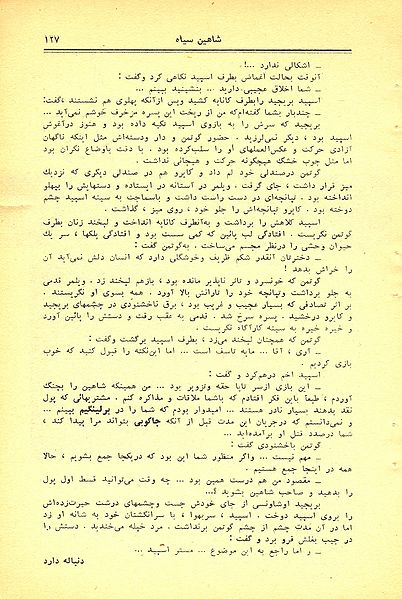 شاهین سیاه ۱۲۷
ــ اشکالی ندارد ...!
آنوقت بحالت اغماض بطرف اسپید نگاهی کرد وگفت :
ــ شما اخلاق عجیبی دارید ... بنشینید ببینم ...
اسپید بریجید رابطرف کاناپه کشید وپس ازآنکه پهلوی هم نشستند ،گفت:
ــ چندبار بشما گفته‌ام که من از ریخت این پسره مزخرف خوشم نمی‌آید ...
بریجید که سرش را به بازوی اسپید تکیه داده بود و هنوز درآغوش
اسپید بود ، دیگر نمی‌لرزید . حضور گوتمن و دار ودسته‌اش مثل اینکه ناگهان
آزادی حرکت و عکس‌العملهای او را سلب‌کرده بود . با دقت باوضاع نگران بود
اما مثل چوب خشک هیچگونه حرکت و هیجانی نداشت .
گوتمن درصندلی خود لم داد و کایرو هم در صندلی دیگری که نزدیک
میز قرار داشت ، جای گرفت . ویلمر در آستانه در ایستاده و دستهایش را بپهلو
انداخته بود . تپانچه‌ای در دست راست داشت و باسماجت به سینه اسپید چشم
دوخته بود . کایرو تپانچه‌اش را جلو خود ، روی میز ، گذاشت .
اسپید کلاهش را برداشت و به‌آنطرف کاناپه انداخت و لبخند زنان بطرف
گوتمن نگریست . افتادگی لب پائین که کمی سست بود و افتادگی پلکها ، سر یک
حیوان وحشی را درنظر مجسم می‌ساخت . به‌گوتمن گفت :
ــ دخترتان آنقدر شکم ظریف وخوشگلی دارد که انسان دلش نمی‌آید آن
را خراش بدهد !
گوتمن که خونسرد و تاثر ناپذیر مانده بود ، بازهم لبخند زد . ویلمر قدمی
به جلو برداشت وتپانچه خود را تارانش بالا آورد . همه بسوی او نگریستند .
بر اثر تصادفی که بسیار عجیب و غریب بود ، برق ناخشنودی در چشمهای بریجید
و کایرو درخشید . پسره سرخ شد . قدمی به عقب رفت و دستش را پائین آورد
و خیره خیره به سینه کارآگاه نگریست .
گوتمن که همچنان لبخند می‌زد ، بطرف اسپید برگشت وگفت :
ــ آری ، آقا ... مایه تاسف است ... اما این‌نکته را قبول کنید که خوب
بازی کردیم .
اسپید اخم درهم‌کرد و گفت :
ــ این بازی ازسر تاپا حقه وتزویر بود ... من همینکه شاهین را بچنگ
آوردم ، طبعا باین فکر افتادم که باشما ملاقات و مذاکره کنم . مشتریهائی که پول
نقد بدهند بسیار نادر هستند ... امیدوار بودم که شما را در برلینگیم ببینم ...
و نمی‌دانستم که درجریان این مدت قبل از آنکه جاکوبی بتواند مرا پیدا کند ،
شما درصدد قتل او برآمده‌اید ...
گوتمن باخشنودی گفت :
ــ مهم نیست ... واگر منظور شما این بود که دریکجا جمع بشویم ، حالا
همه در اینجا جمع هستیم .
ــ مقصود من هم درست همین بود ... چه وقت می‌توانید قسط اول پول
را بدهید و صاحب شاهین بشوید !...
بریجید اوشاونسی از جای خودش جست وچشمهای درشت حیرت‌زده‌اش
را بروی اسپید دوخت . اسپید ، سربهوا ، با سرانگشتان خود به شانه او زد
اما در آن مدت چشم از چشم گوتمن برنداشت . مرد خپله می‌خندید . دستش را
در جیب بغلش فرو برد و گفت :
ــ و اما راجع به این موضوع ... مستر اسپید ...
دنباله دارد